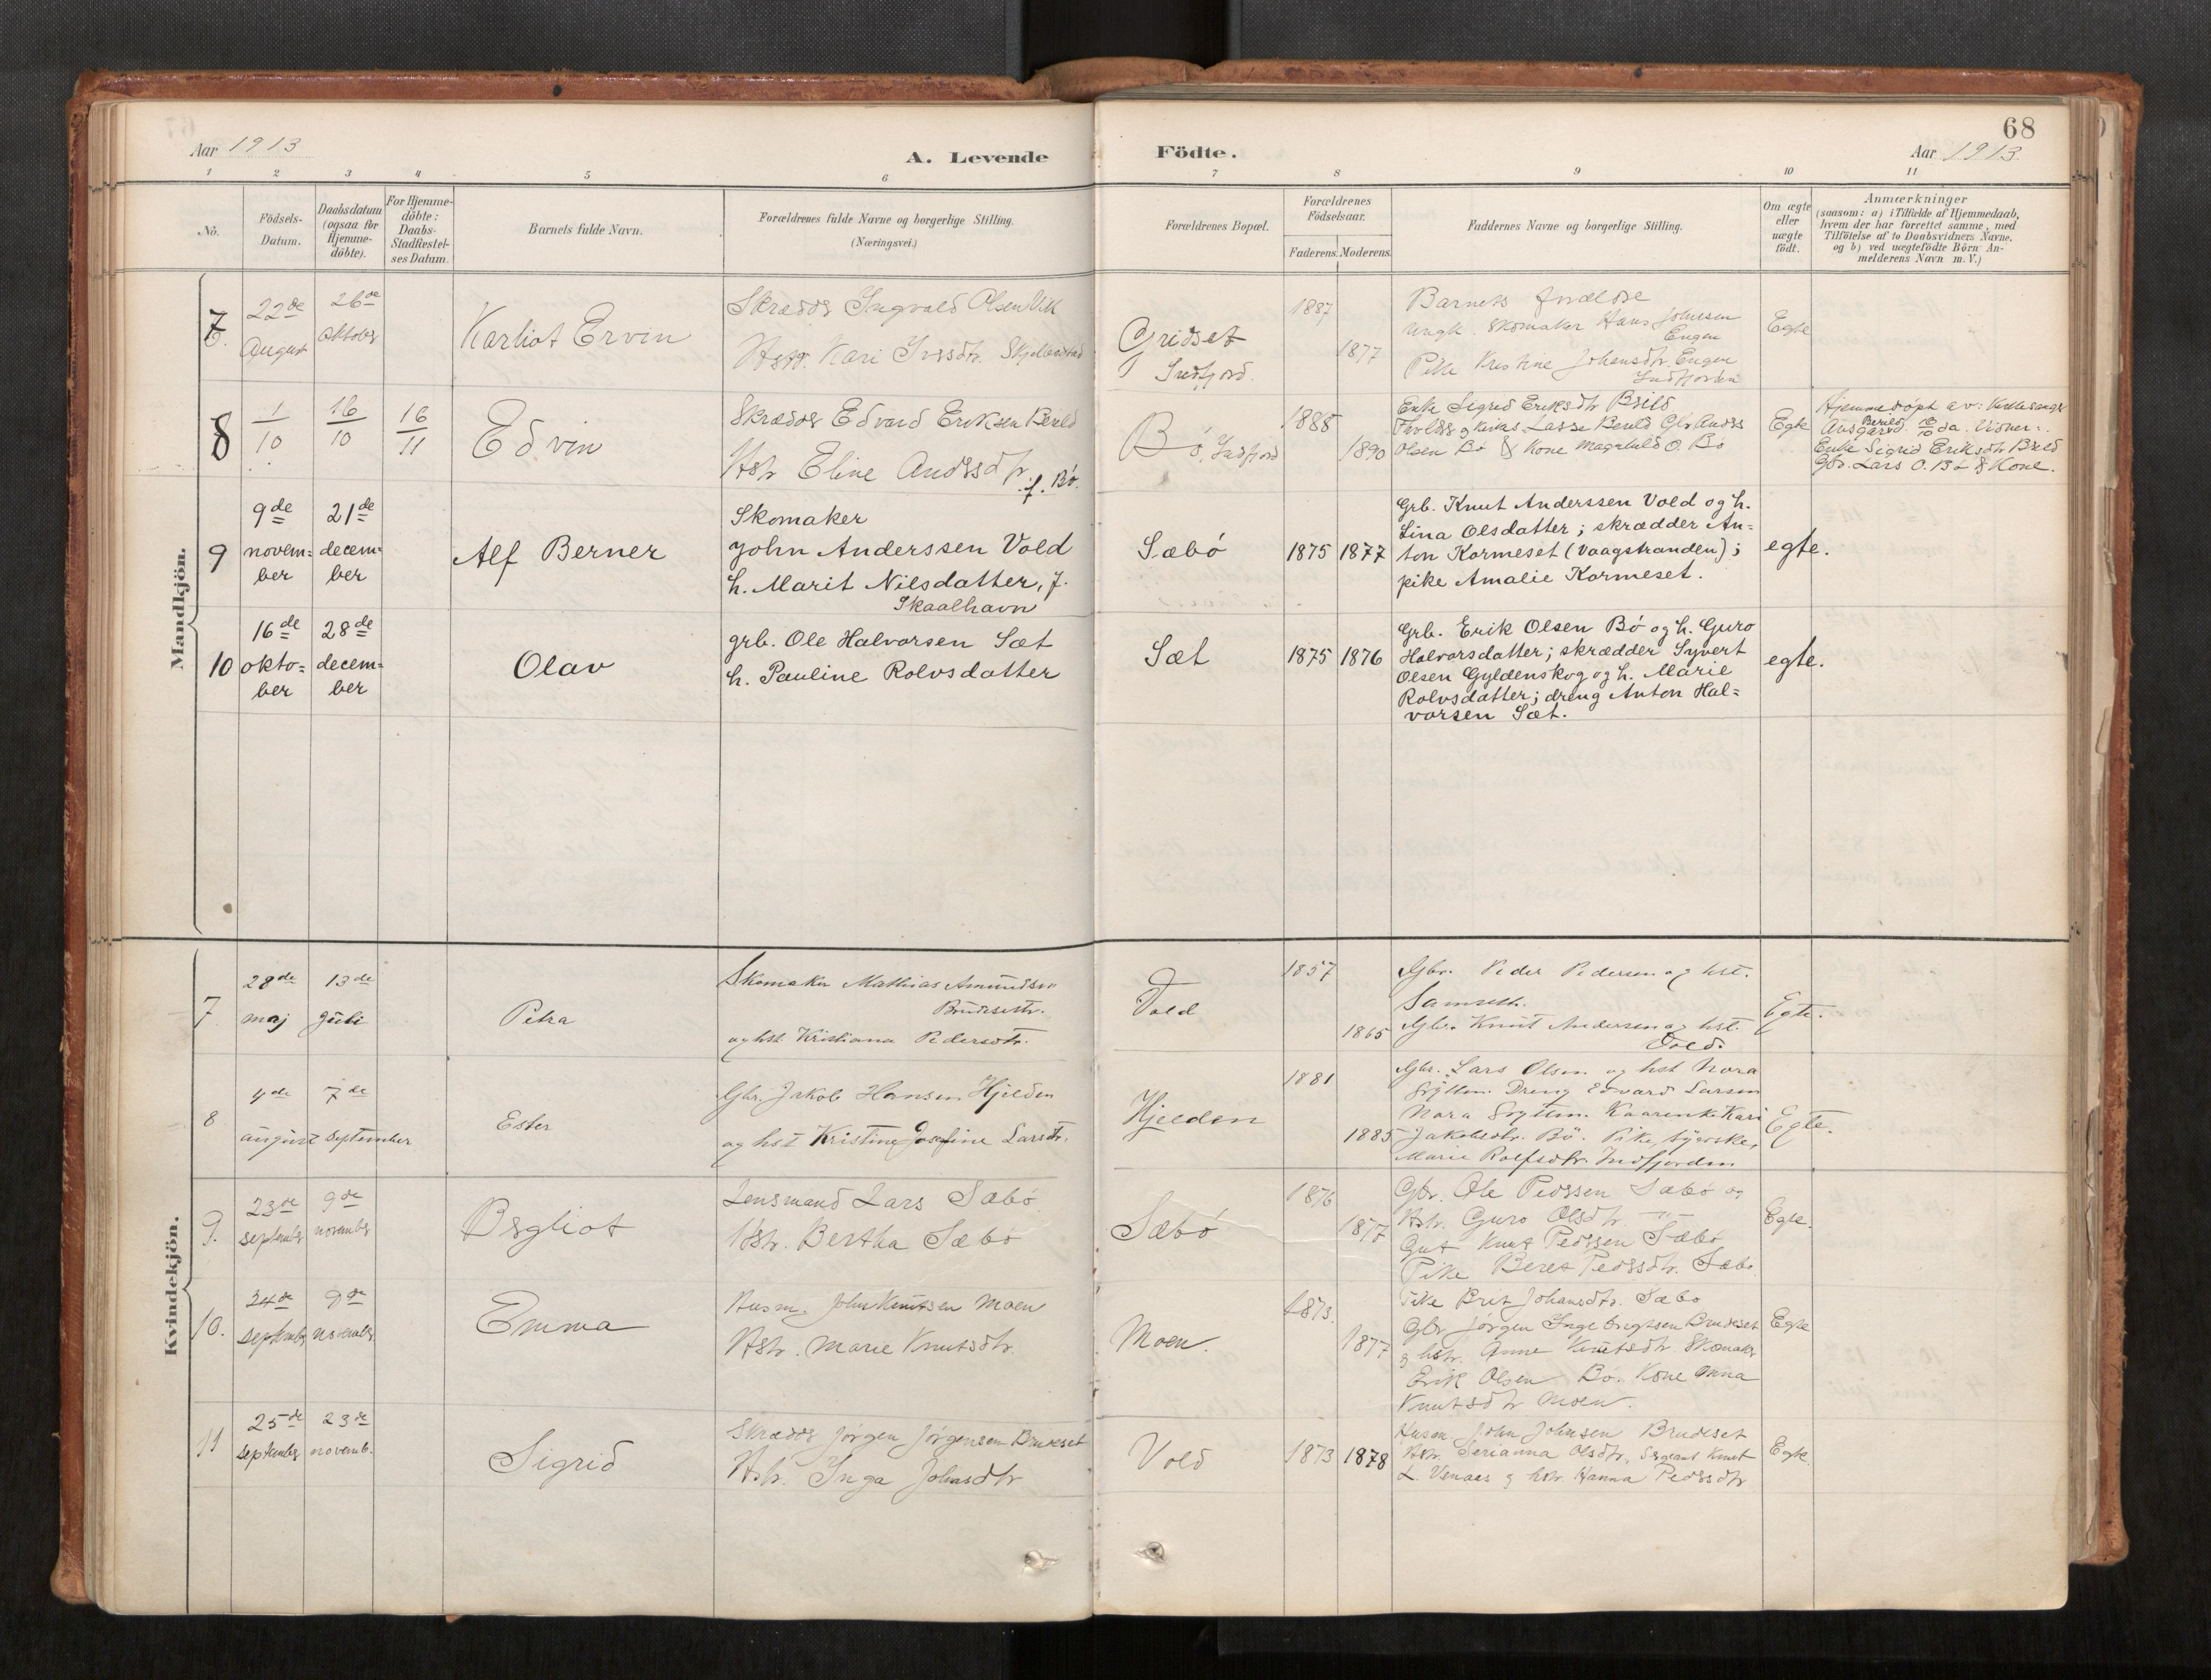 68
Aar 1913
A. Levende Födte.
Aar 1913.
1 2 3 4 5 6 7 8 9 10 11
No.
Födsels-
Datum.
Daabsdatum
(ogsaa for
Hjemme-
döbte).
For Hjemme-
döbte:
Daabs-
Stadfæstel-
ses Datum.
Barnets fulde Navn.
Forældrenes fulde Navne og borgerlige Stilling.
(Næringsvei.)
Forældrenes Bopæl.
Forældrenes
Födselsaar.
Faderens.
Moderens.
Faddernes Navne og borgerlige Stilling.
Om ægte
eller
uægte
födt.
Anmærkninger
(saasom: a) i Tilfælde af Hjemmedaab,
hvem der har forrettet samme, med
Tilföielse af to Daabsvidners Navne,
og b) ved uægtefödte Börn An-
melderens Navn m. V.)
Mandkjön.
7.
22de
August
26de
oktober
Karliot Ervin
Ingvald Olsen Vik
Hstr. Kari
Gridset
Indfjord.
1887
1877
Barnets
ungk. skomaker Hans Johnsen
Engen
Pike Kristine Johansdtr. Engen
Indfjorden
Egte
8
1/10
16/10
16/11
Edvin
Edvard Eriksen
Hstr Eline
f. Bö.
Bö, Indfjord
1888
1890
Enke Sigrid Eriksdtr
Lasse
Olsen Bö & Kone O. Bö
Egte
Hjemmedöpt av:
Enke Sigrid Eriksdtr
Gbr. Lars O. Bö & Kone.
9
9de
novem=
ber
21de
decem=
ber
Alf Berner
Skomaker
John Anderssen Vold
h. Marit Nilsdatter, f.
Skaalhavn
Sæbö
1875 1877
Grb. Knut Anderssen Vold og h.
Lina Olsdatter; skrædder An=
ton Kormeset (Vaagstranden);
pike Amalie Kormeset.
egte.
10
16de
okto=
ber
28de
decem=
ber
Olav
grb. Ole Halvorsen Sæt
h. Pauline Rolvsdatter
Sæt
1875 1876
Grb. Erik Olsen Bö og h. Guro
Halvorsdatter; skrædder Syvert
Olsen Gyldenskog og h. Marie
Rolvsdatter; dreng Anton Hal=
vorsen Sæt.
egte.
Kvindekjön.
7
28de
maj
13de
Juli
Petra
Skomaker Mathias Amundsen
og hst Kristiana Pedersdtr.
Vold
1857
1865
Gbr. Peder Pedersen og hst.
Gbr. Knut Andersen og hst.
Vold.
Egte.
8
4de
august
7de
september
Ester
Gbr. Jakob Hansen Hjelden
og hst Kristine Josefine Larsdtr.
Hjelden
1881
1885
Gbr. Lars Olsen og hst Nora
Dreng Edvard Larsen
Nora Kari
Jakobsdtr. Bö. Pike, syerske,
Marie Rolfsdtr. Indfjorden
Egte.
9.
23de
septembr
9de
novembr
Bergliot
Lensmand Lars Sæbö
Hstr. Bertha Sæbö
Sæbö
1876
1877
Gbr. Ole Pedersen Sæbö og
Hstr. Guro Olsdtr. —"—
Gut Knut Pedersen Sæbö
Pike Beret Pedersdtr. Sæbö
Egte.
10.
24de
septembr
9de
novembr
Emma
Husm. John Knutsen Moen
Hstr. Marie Knutsdtr.
Moen.
1873.
1877
Pike Brit Johansdtr. Sæbö
Gbr Jørgen Ingebrigtsen Brudeset
& hstr. Anne Knutsdtr. Skomaker
Erik Olsen Bö. Kone Anna
Knutsdtr Moen.
Egte
11
25de
septembr
23de
novemb.
Sigrid
Jörgen Jörgensen Brudeset
Hstr. Inga Johnsdtr
Vold
1873 1878
Husm John Johnsen Brudeset
Hstr. Serianna Olsdtr. Sergeant Knut
L. Venaas & hstr. Hanna Pedersdtr
Egte.